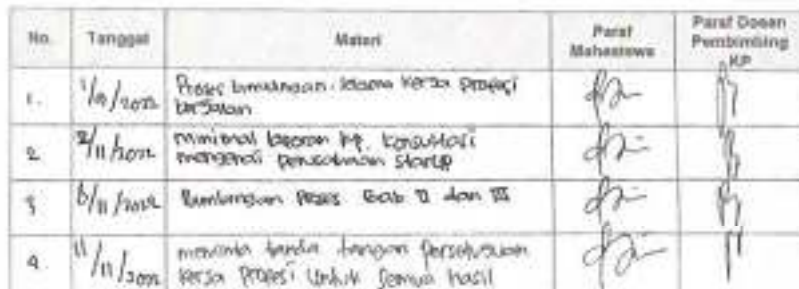 No. Tanggal Materi Paraf Mahasiswa Paraf Dosen Pembimbing KP
1. Proses bimbingan selama kerja profesi
berjalan
2. 2/11/2022 minimal laporan kp. konsultasi
mengenai perusahaan startup
3 /11/2022 Bimbingan Proses Bab II dan III
4. 11/11/2022 meminta tanda tangan persetujuan
kerja profesi untuk semua hasil